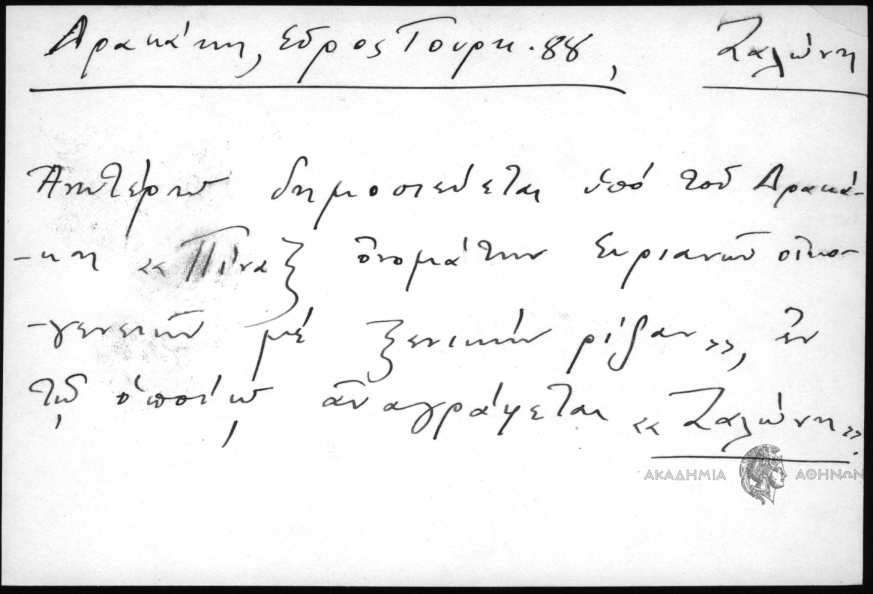 Δρακάκη, Σύρος Τουρκ. 88, Ζαλώνη
Ἀνωτέρω δημοσιεύεται ὑπό τοῦ Δρακά-
-κη «Πίναξ ὀνομάτων Συριανῶν οἰκο-
-γενειῶν μέ ξενικήν ρίζαν», ἐν
τῷ ὁποίῳ ἀναγράφεται «Ζαλώνη».
ΑΚΑΔΗΜΙΑ ΑΘΗΝΩΝ